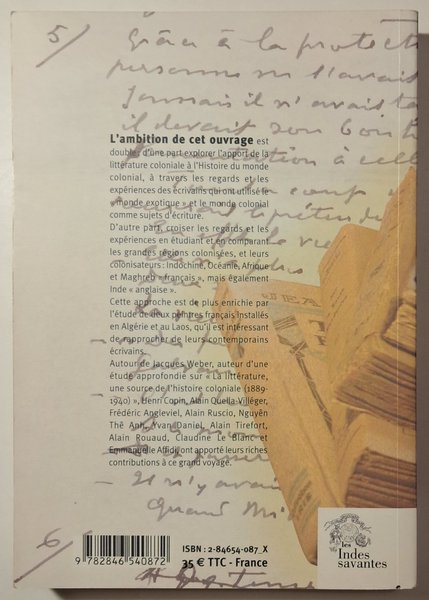 5/ Grâce à la protect
personne ne l'avait
Jamais il n'avait
il devait son bonh
L'ambition de cet ouvrage est
double, d'une part explorer l'apport de la
littérature coloniale à l'Histoire du monde
colonial, à travers les regards et les
expériences des écrivains qui ont utilisé le
« monde exotique » et le monde colonial
comme sujets d'écriture.
D'autre part, croiser les regards et les
expériences en étudiant et en comparant
les grandes régions colonisées, et leurs
colonisateurs : Indochine, Océanie, Afrique
et Maghreb « français », mais également
Inde « anglaise ».
Cette approche est de plus enrichie par
l'étude de deux peintres français installés
en Algérie et au Laos, qu'il est intéressant
de rapprocher de leurs contemporains
écrivains.
Autour de Jacques Weber, auteur d'une
étude approfondie sur « La littérature,
une source de l'histoire coloniale (1889-
1940) », Henri Copin, Alain Quella-Villéger,
Frédéric Angleviel, Alain Ruscio, Nguyên
Thê Anh, Yvan Daniel, Alain Tirefort,
Alain Rouaud, Claudine Le Blanc et
Emmanuelle Affidi ont apporté leurs riches
contributions à ce grand voyage.
Il n'y avai
Quand
6/
ISBN : 2-84654-087_X
35 € TTC - France
9 782846 540872
les
Indes
savantes